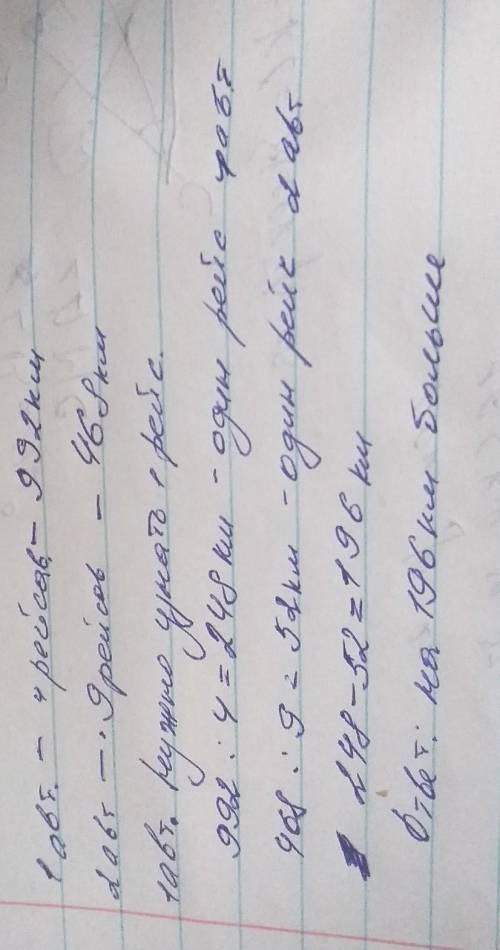 1 авт. - 4 рейсов - 992 км
2 авт - 9 рейсов - 468 км
1 авт. Нужно узнать 1 рейс.
992 : 4 = 248 км - один рейс 1 авт.
468 : 9 = 52 км - один рейс 2 авт
248 - 52 = 196 км
Ответ: на 196 км больше